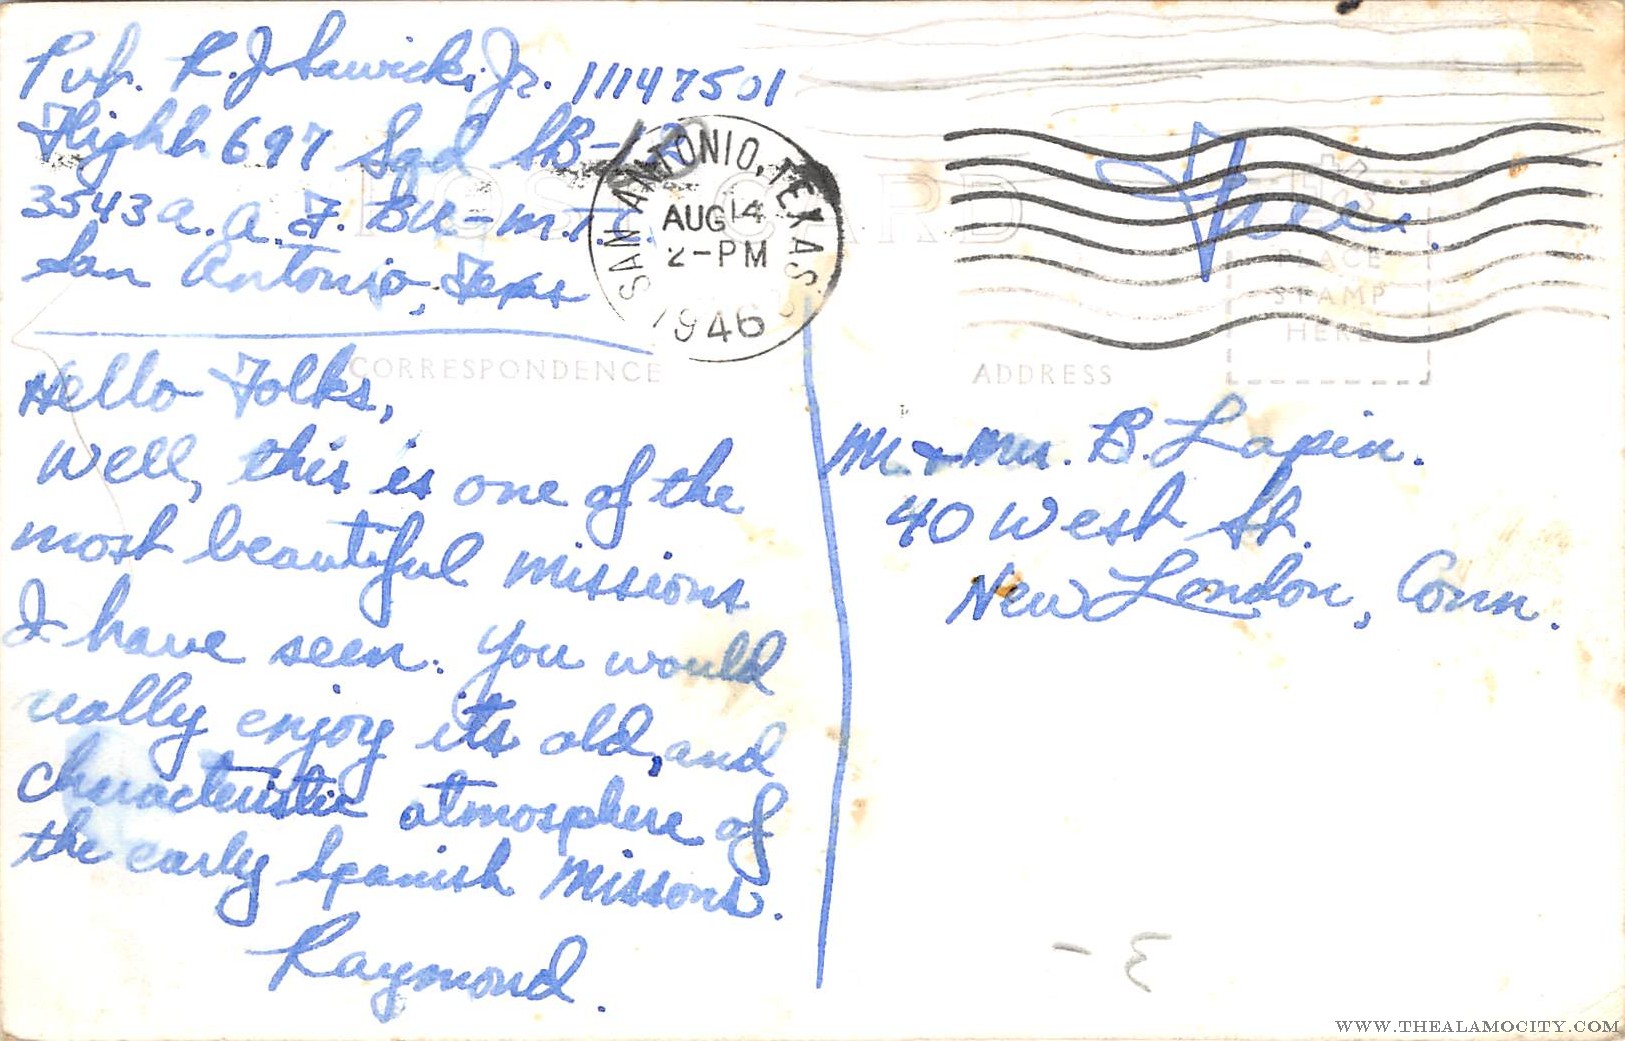 Pvt. R. J. Sawicki, Jr. 11147501
Flight 697 Sqd SB-12
3543 a. a. F. BU - m.T.
San Antonio, Texas
SAN ANTONIO, TEXAS
AUG 14
2-PM
1946
Free.
POST CARD
PLACE
STAMP
HERE
CORRESPONDENCE
ADDRESS
Hello Folks,
Well, this is one of the
most beautiful missions
I have seen. You would
really enjoy its old, and
characteristic atmosphere of
the early Spanish Missons.
Raymond.
Mr. & Mrs. B. Lapin.
40 West St.
New London, Conn.
WWW.THEALAMOCITY.COM